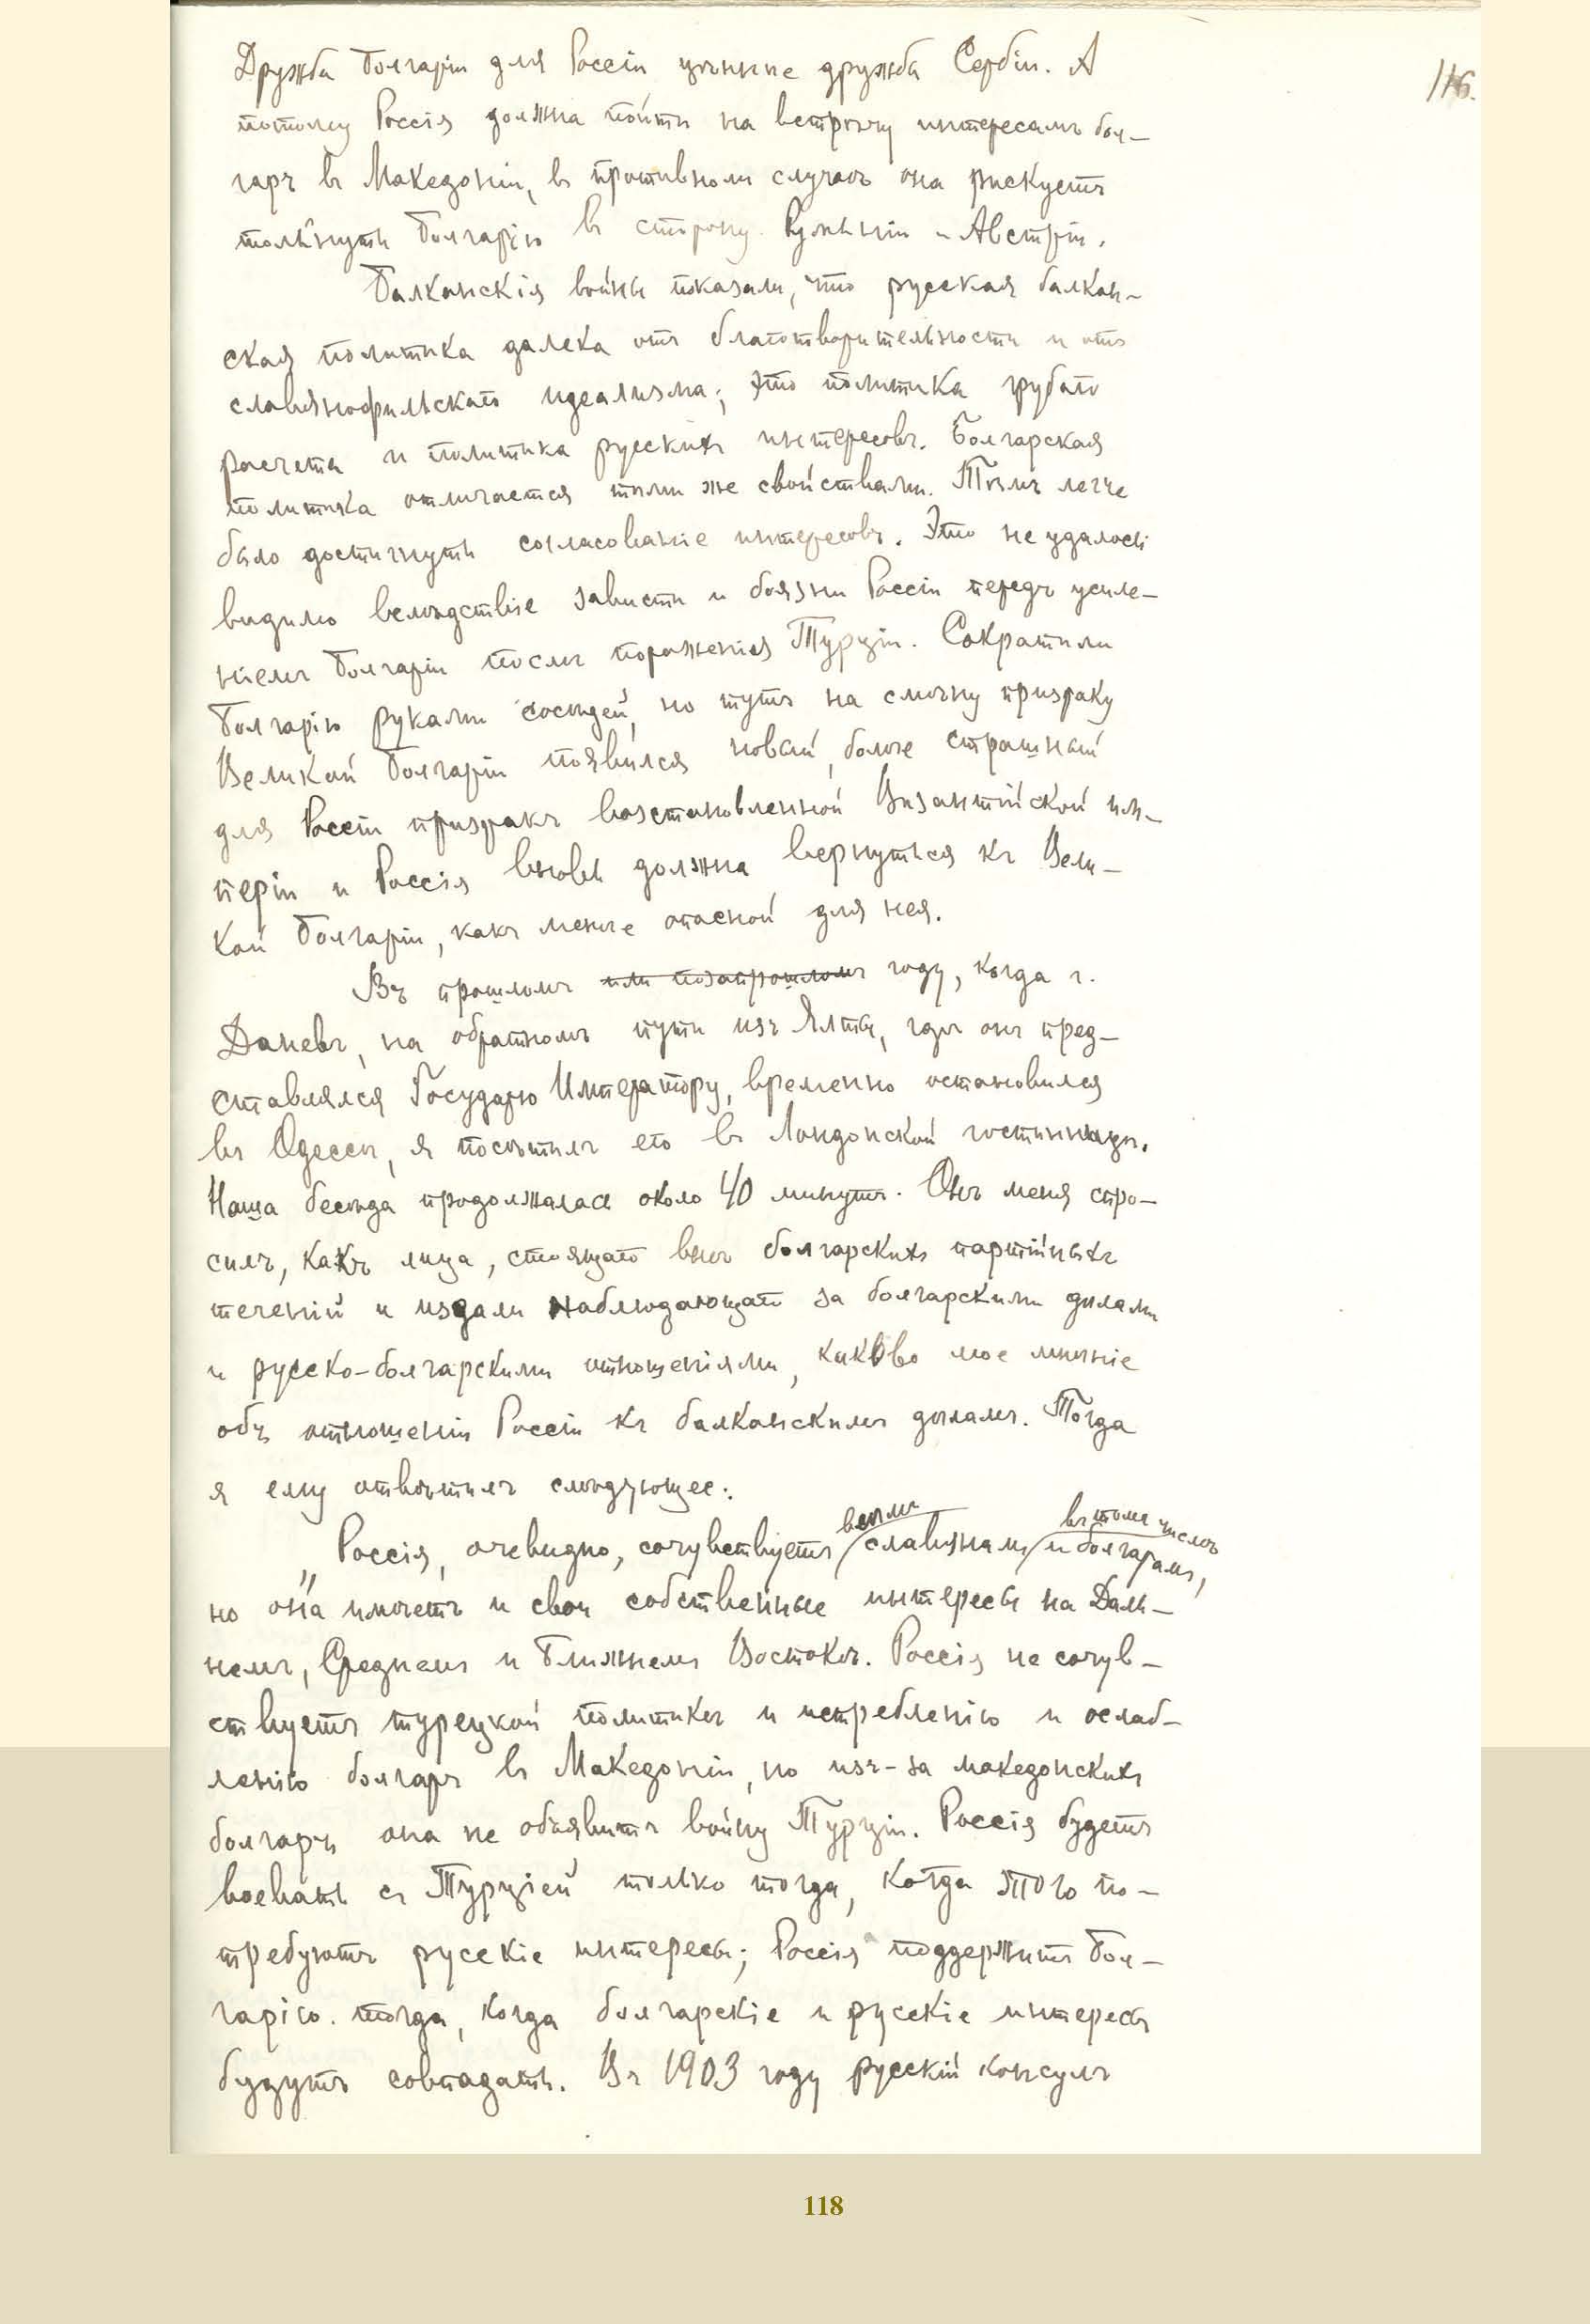 116.
Дружба Болгаріи для Россіи цѣннѣе дружба Сербіи. А
потому Россія должна пойти на встрѣчу интересамъ бол-
гаръ въ Македоніи, въ противномъ случаѣ она рискуетъ
толкнуть Болгарію въ сторону Румыніи и Австріи.
Балканскія войны показали, что русская балкан-
ская политика далека отъ благотворительности и отъ
славянофильскаго идеализма; это политика грубаго
расчета и политика русскихъ интересовъ. Болгарская
политика отличается тѣми же свойствами. Тѣмъ легче
было достигнуть согласованіе интересовъ. Это не удалось
видимо вслѣдствіе зависти и боязни Россіи передъ усиле-
ніемъ Болгаріи послѣ пораженія Турціи. Сократили
Болгарію руками сосѣдей, но тутъ на смѣну призраку
Великой Болгаріи появился новый, болѣе страшный
для Россіи призракъ возстановленной Византійской им-
періи и Россія вновь должна вернуться къ Вели-
кой Болгаріи, какъ менѣе опасной для нея.
Въ прошломъ или позапрошломъ году, когда г.
Даневъ, на обратномъ пути изъ Ялты, гдѣ онъ пред-
ставлялся Государю Императору, временно остановился
въ Одессѣ, я посѣтилъ его въ Лондонской гостинницѣ.
Наша бесѣда продолжалась около 40 минутъ. Онъ меня спро-
силъ, какъ лица, стоящаго внѣ болгарскихъ партійныхъ
теченій и издали наблюдающаго за болгарскими дѣлами
и русско-болгарскими отношеніями, каково мое мнѣніе
объ отношеніи Россіи къ балканскимъ дѣламъ. Тогда
я ему отвѣтилъ слѣдующее:
„Россія, очевидно, сочувствуетъ всѣмъ славянамъ, въ томъ числѣ и болгарамъ,
но она имѣетъ и свои собственные интересы на Даль-
немъ, Среднемъ и Ближнемъ Востокѣ. Россія не сочув-
ствуетъ турецкой политикѣ и истребленію и ослаб-
ленію болгаръ въ Македоніи, но изъ-за македонскихъ
болгаръ она не объявитъ войну Турціи. Россія будетъ
воевать съ Турціей только тогда, когда этого по-
требуютъ русскіе интересы; Россія поддержитъ Бол-
гарію тогда, когда болгарскіе и русскіе интересы
будутъ совпадать. Въ 1903 году русскій консулъ
118